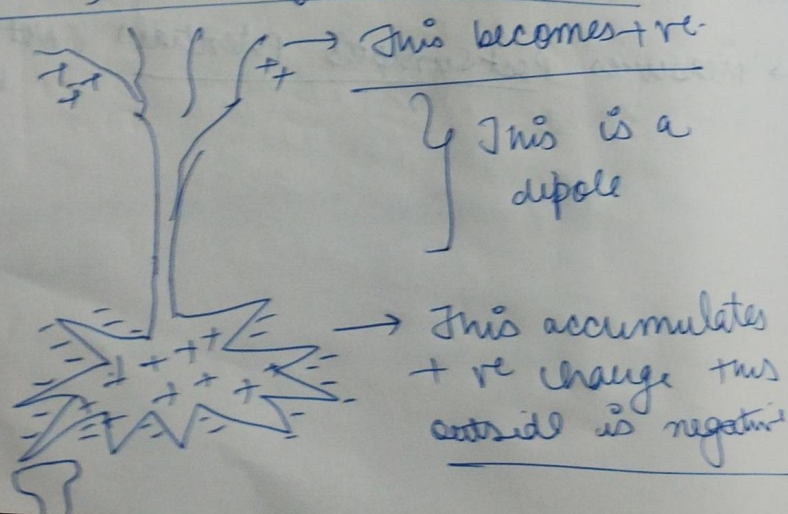 → This becomes +ve.
This is a
dipole
→ This accumulates
+ ve change thus
outside is negative